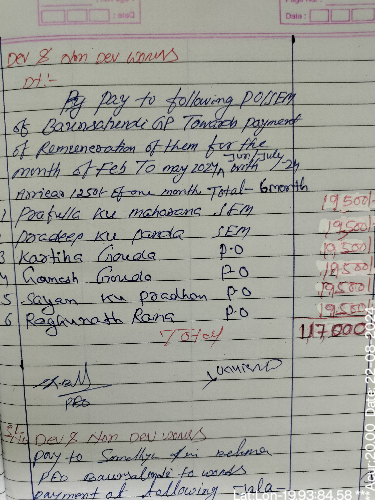 Date :
Dev & Non Dev works
Dt:-
By pay to following PO/SEM
of GP Towards payment
of Remuneration of them for the
month of Feb To may 2024, Jun/July with
Arriear 1250/- of one month Total - 6 month
1 Prafulla Ku maharana SEM 19,500/-
2 Pradeep Ku panda SEM 19,500/-
3 Kartika Gouda P.O 19,500/-
4 Ganesh Gouda P.O 19,500/-
5 Sayan Ku Pradhan P.O 19,500/-
6 Raghunath Rana P.O 19,500/-
Total 117,000
PEO
Dev & Non Dev works
pay to
PEO to wards
payment of following
Date 22-08-2024
Lat Lon-19.93:84.58